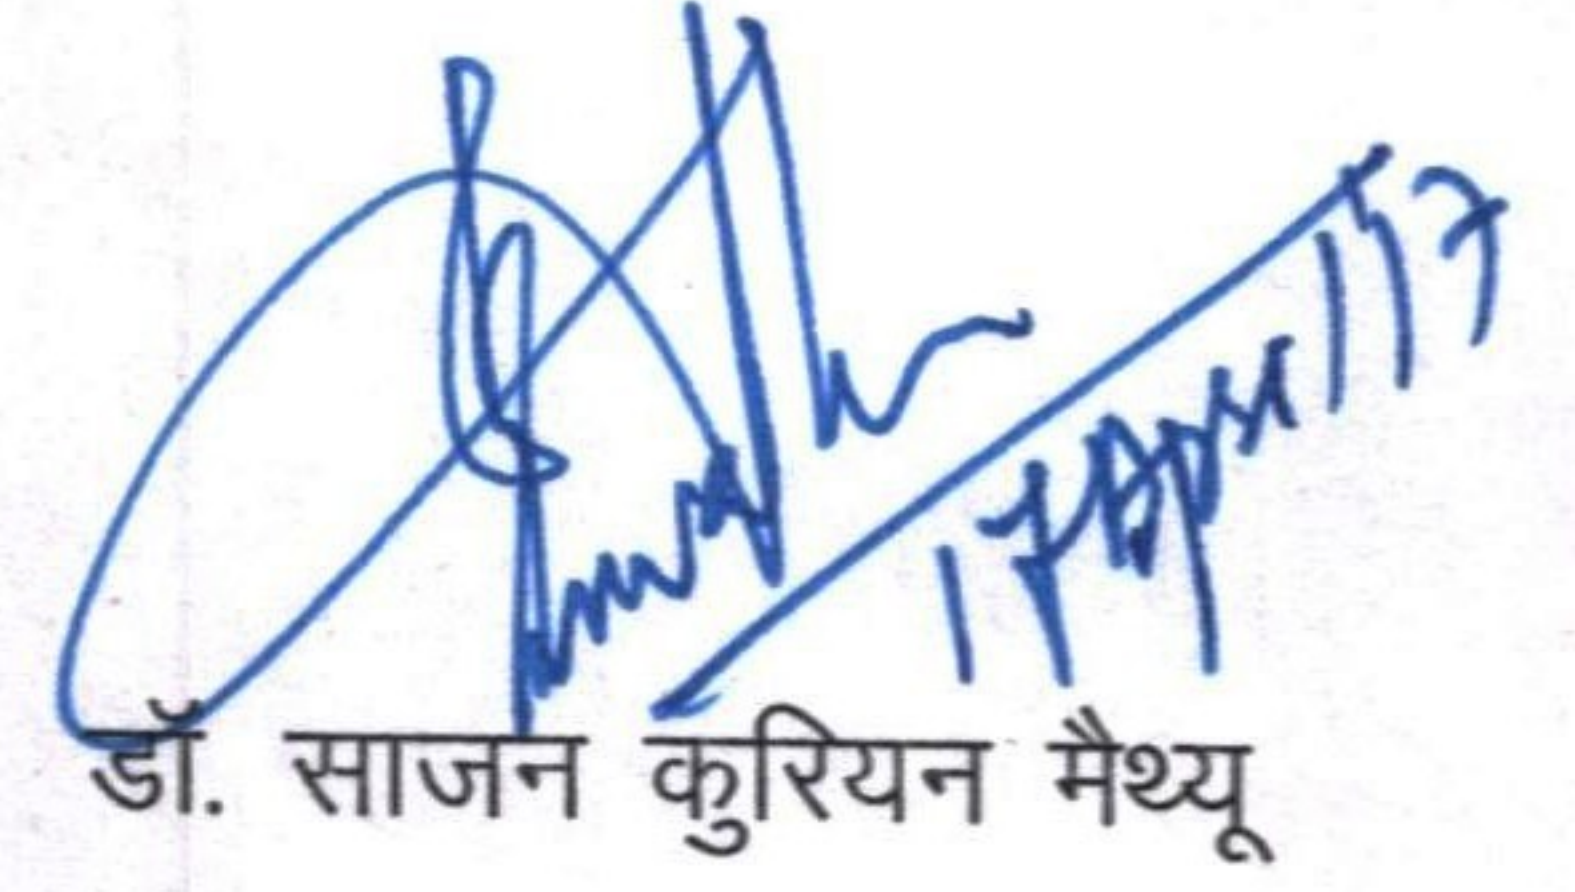 17 April 17
डॉ. साजन कुरियन मैथ्यू